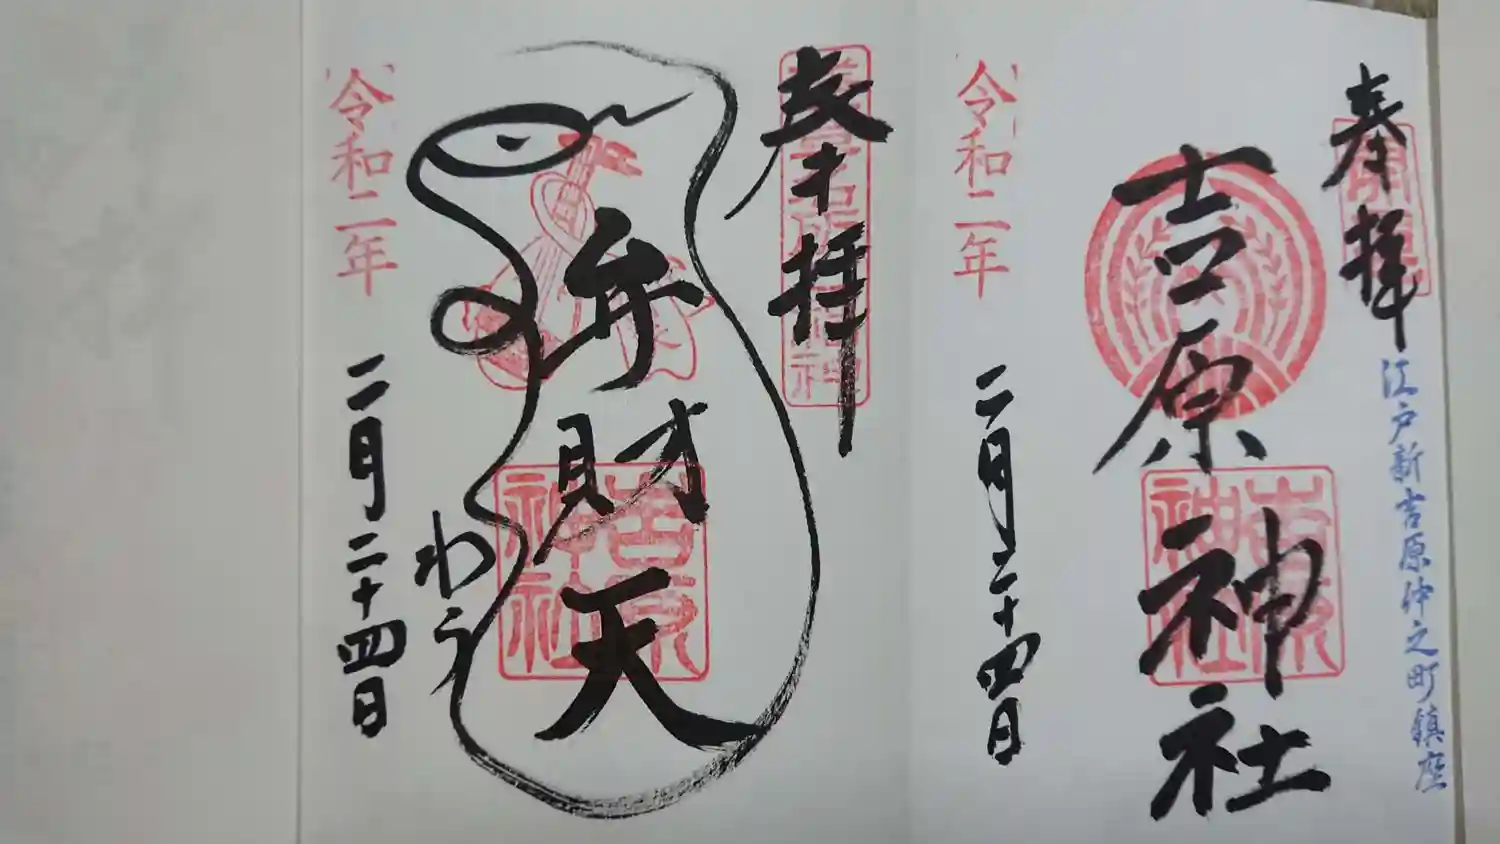 奉拝
江戸新吉原仲之町鎮座
吉原神社
吉原神社
令和二年
二月二十四日
奉拝
弁財天
吉原神社
令和二年
二月二十四日